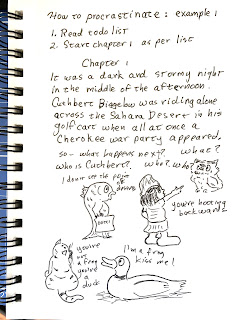 How to procrastinate: example 1
1. Read todo list
2. Start chapter 1 as per list
Chapter 1
It was a dark and stormy night
in the middle of the afternoon.
Cuthbert Biggelow was riding alone
across the Sahara Desert in his
golf cart when all at once a
Cherokee war party appeared.
so - what happens next?
what?
who is Cuthbert?
who? who?
I dont see the point
you're hooting
backwards
you're
not
a frog
you're a
duck
I'm a frog
kiss me!